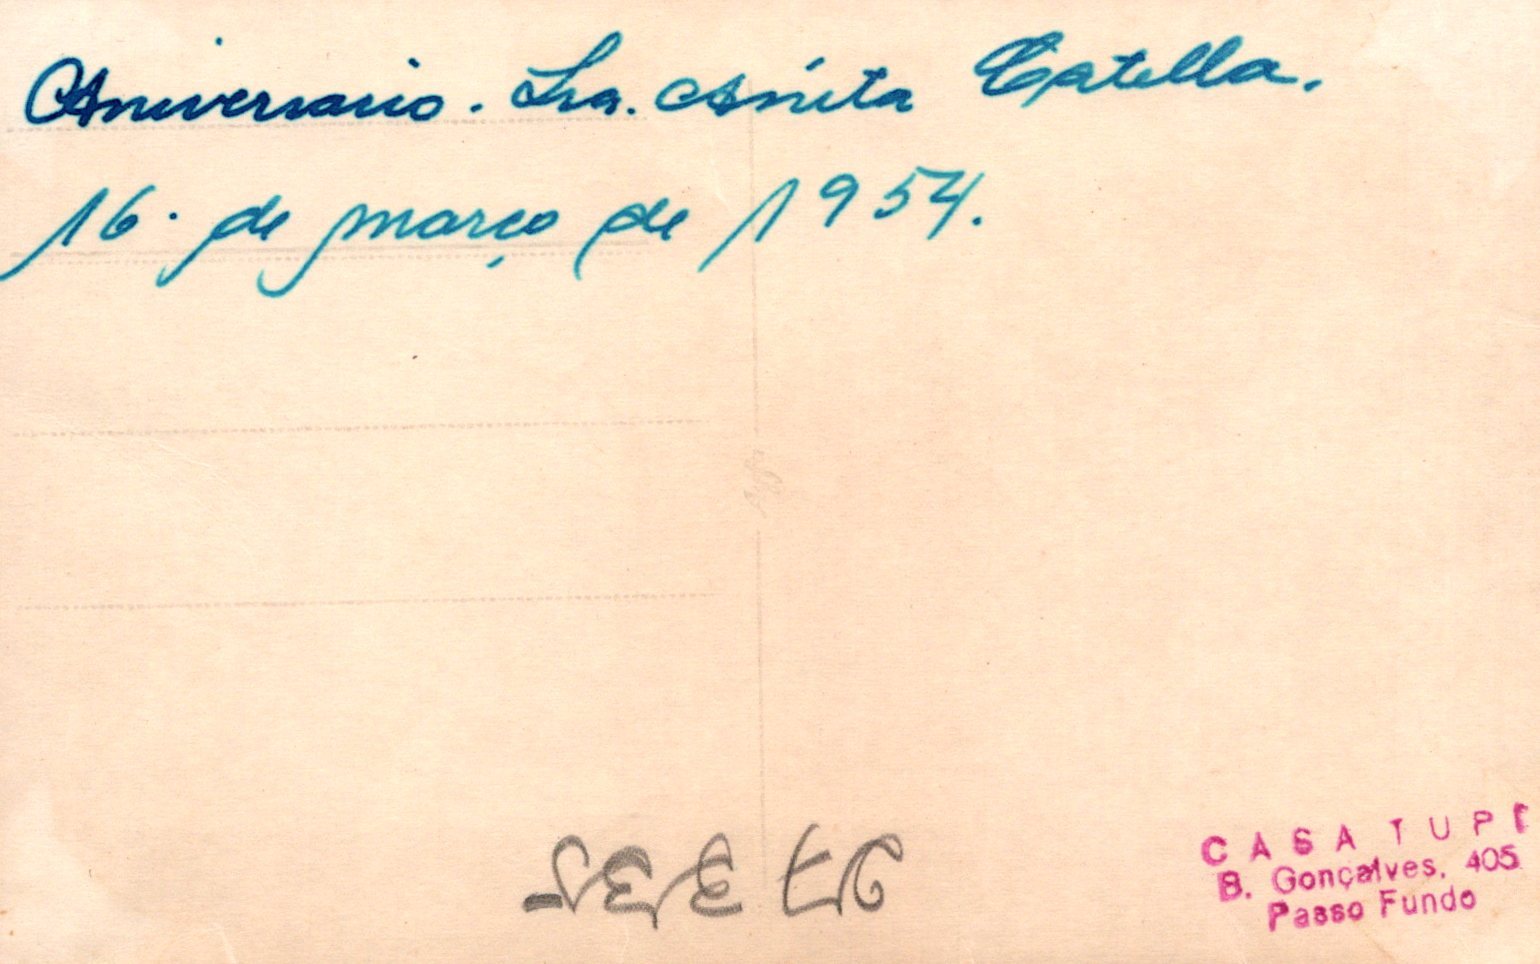 Aniversario. Sra. Anita
16. de março de 1954.
CASA TUPI
B. Gonçalves, 405
Passo Fundo